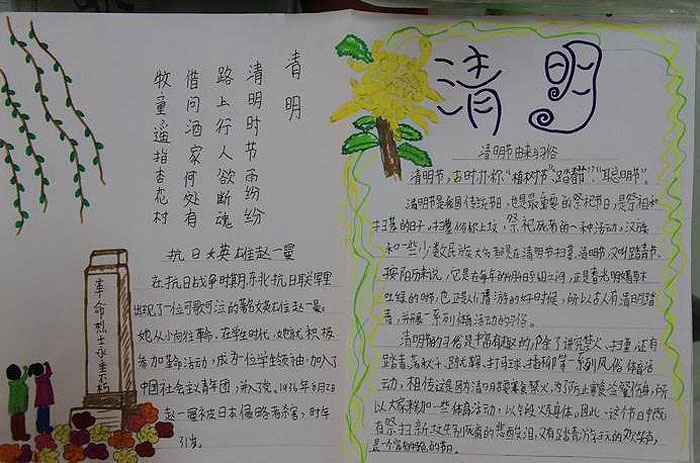 清明
清明时节雨纷纷
路上行人欲断魂
借问酒家何处有
牧童遥指杏花村
抗日女英雄赵一曼
在抗日战争时期,东北抗日联军里
出现了一位可歌可泣的著名女英雄赵一曼。
她从小向往革命。在学生时代,她就积极
参加革命活动,成为一位学生领袖,加入了
中国社会主义青年团,并入了党。1936年8月2日
赵一曼被日本侵略者杀害,时年
31岁。
革命烈士永垂不朽
清明
清明节由来与习俗
清明节,古时亦称“植树节”、“踏春节”、“聪明节”。
清明节是我国传统节日,也是最重要的祭祀节日,是祭祖和
扫墓的日子。扫墓俗称上坟,祭祀死者的一种活动。汉族
和一些少数民族大多都是在清明节扫墓。清明节,又叫踏青节,
按阳历来说,它是在每年的4月4日至6日之间,正是春光明媚草木
吐绿的时节,也正是人们春游的好时候,所以古人有清明踏
青,并开展一系列体育活动的习俗。
清明节的习俗是丰富有趣的,除了讲究禁火、扫墓,还有
踏青、荡秋千、蹴鞠、打马球、插柳等一系列风俗体育活
动。相传这是因为清明节要寒食禁火,为了防止寒食冷餐伤身,所
以大家来参加一些体育活动,以锻炼身体。因此,这个节日中既
有祭扫新坟生别死离的悲酸泪,又有踏青游玩的欢笑声,
是一个富有特色的节日。